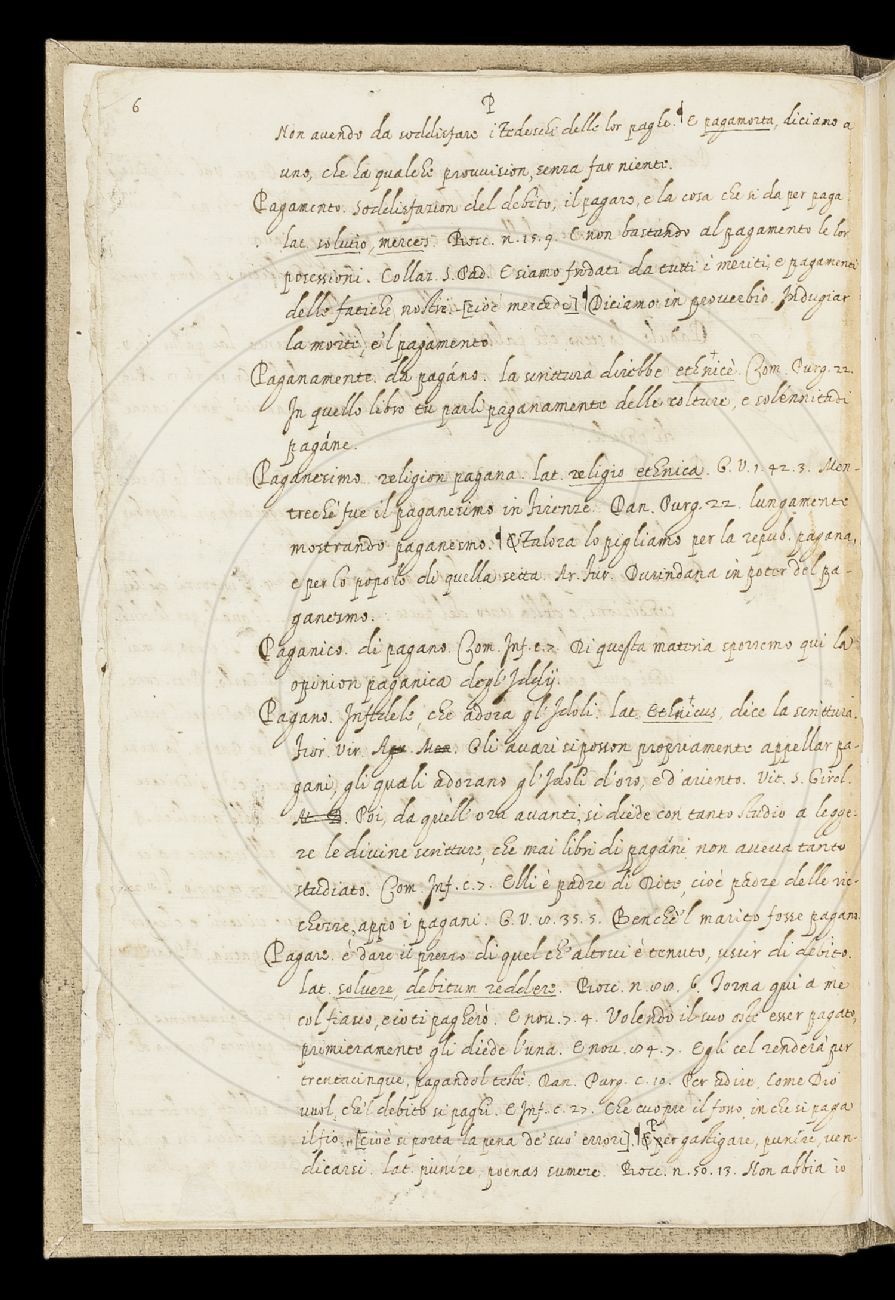 6
P
Non auendo da soddisfare i Tedeschi delle lor paghe. ¶ E pagamorta, diciamo a
uno, che ha qualche prouuision, senza far niente.
Pagamento. Soddisfazion del debito, il pagare, e la cosa che si da per paga
lat. solutio, merces. Bocc. n. 15. 9. E non bastando al pagamento le lor
posessioni. Collaz. S. Pad. E siamo fridati da tutti i meriti, e pagamenti
delle fatiche nostre [cioè mercede] ¶ Diciamo in prouerbio. Indugiar
la morte, e 'l pagamento
Paganamente. da pagáno. la scrittura direbbe ethnicè. Com. Purg. 22.
In quello libro tu parli paganamente delle colture, e solénnitadi
pagáne.
Paganesimo. religion pagana. lat. religio ethnica. G. V. 1. 42. 3. Men-
treché fue il paganesimo in Firenze. Dan. Purg. 22. lungamente
mostrando paganesmo. ¶ Talora lo pigliamo per la repub. pagana,
e per lo popolo di quella setta. Ar. Fur. Durindana in poter del pa-
ganesmo.
Paganico. di pagano. Com. Inf. c. 7. Di questa materia sporremo qui la
opinion paganica degl' Idoly.
Pagano. Infedele, che adora gl' Idoli. lat. Ethnicus, dice la scrittura.
Fior. Vir. Gli auari si posson propriamente appellar pa-
gani, gli quali adorano gl' Idoli d'oro, e d'ariento. Vit. S. Girol.
Poi, da quell' ora auanti, si diede con tanto studio a legge-
re le diuine scritture, che mai libri di pagáni non aueua tanto
studiato. Com. Inf. c. 7. Elli è padre di Dite, cioè padre delle ric-
chezze, appo i pagani. G. V. 10. 35. 5. Benche 'l marito fosse pagano.
Pagare. é dare il prezzo di quel ch' altrui è tenuto, uscir di debito.
lat. soluere, debitum reddere. Bocc. n. 6. Torna qui a me
col fiasco, e io ti pagherò. E nou. 7. 4. Volendo il suo oste esser pagato,
primieramente gli diede l'una. E nou. 4. 7. Egli cel renderà per
trentacinque, pagandol testè. Dan. Purg. c. 10. Per udire, Come Dio
uuol, che 'l debito si paghi. E Inf. c. 27. Che cuopre il fosso, in che si paga
il fio [cioè si porta la pena de' suo' errori]. ¶ Per gastigare, punire, ven-
dicarsi. lat. punire, poenas sumere. Bocc. n. 50. 13. Non abbia io